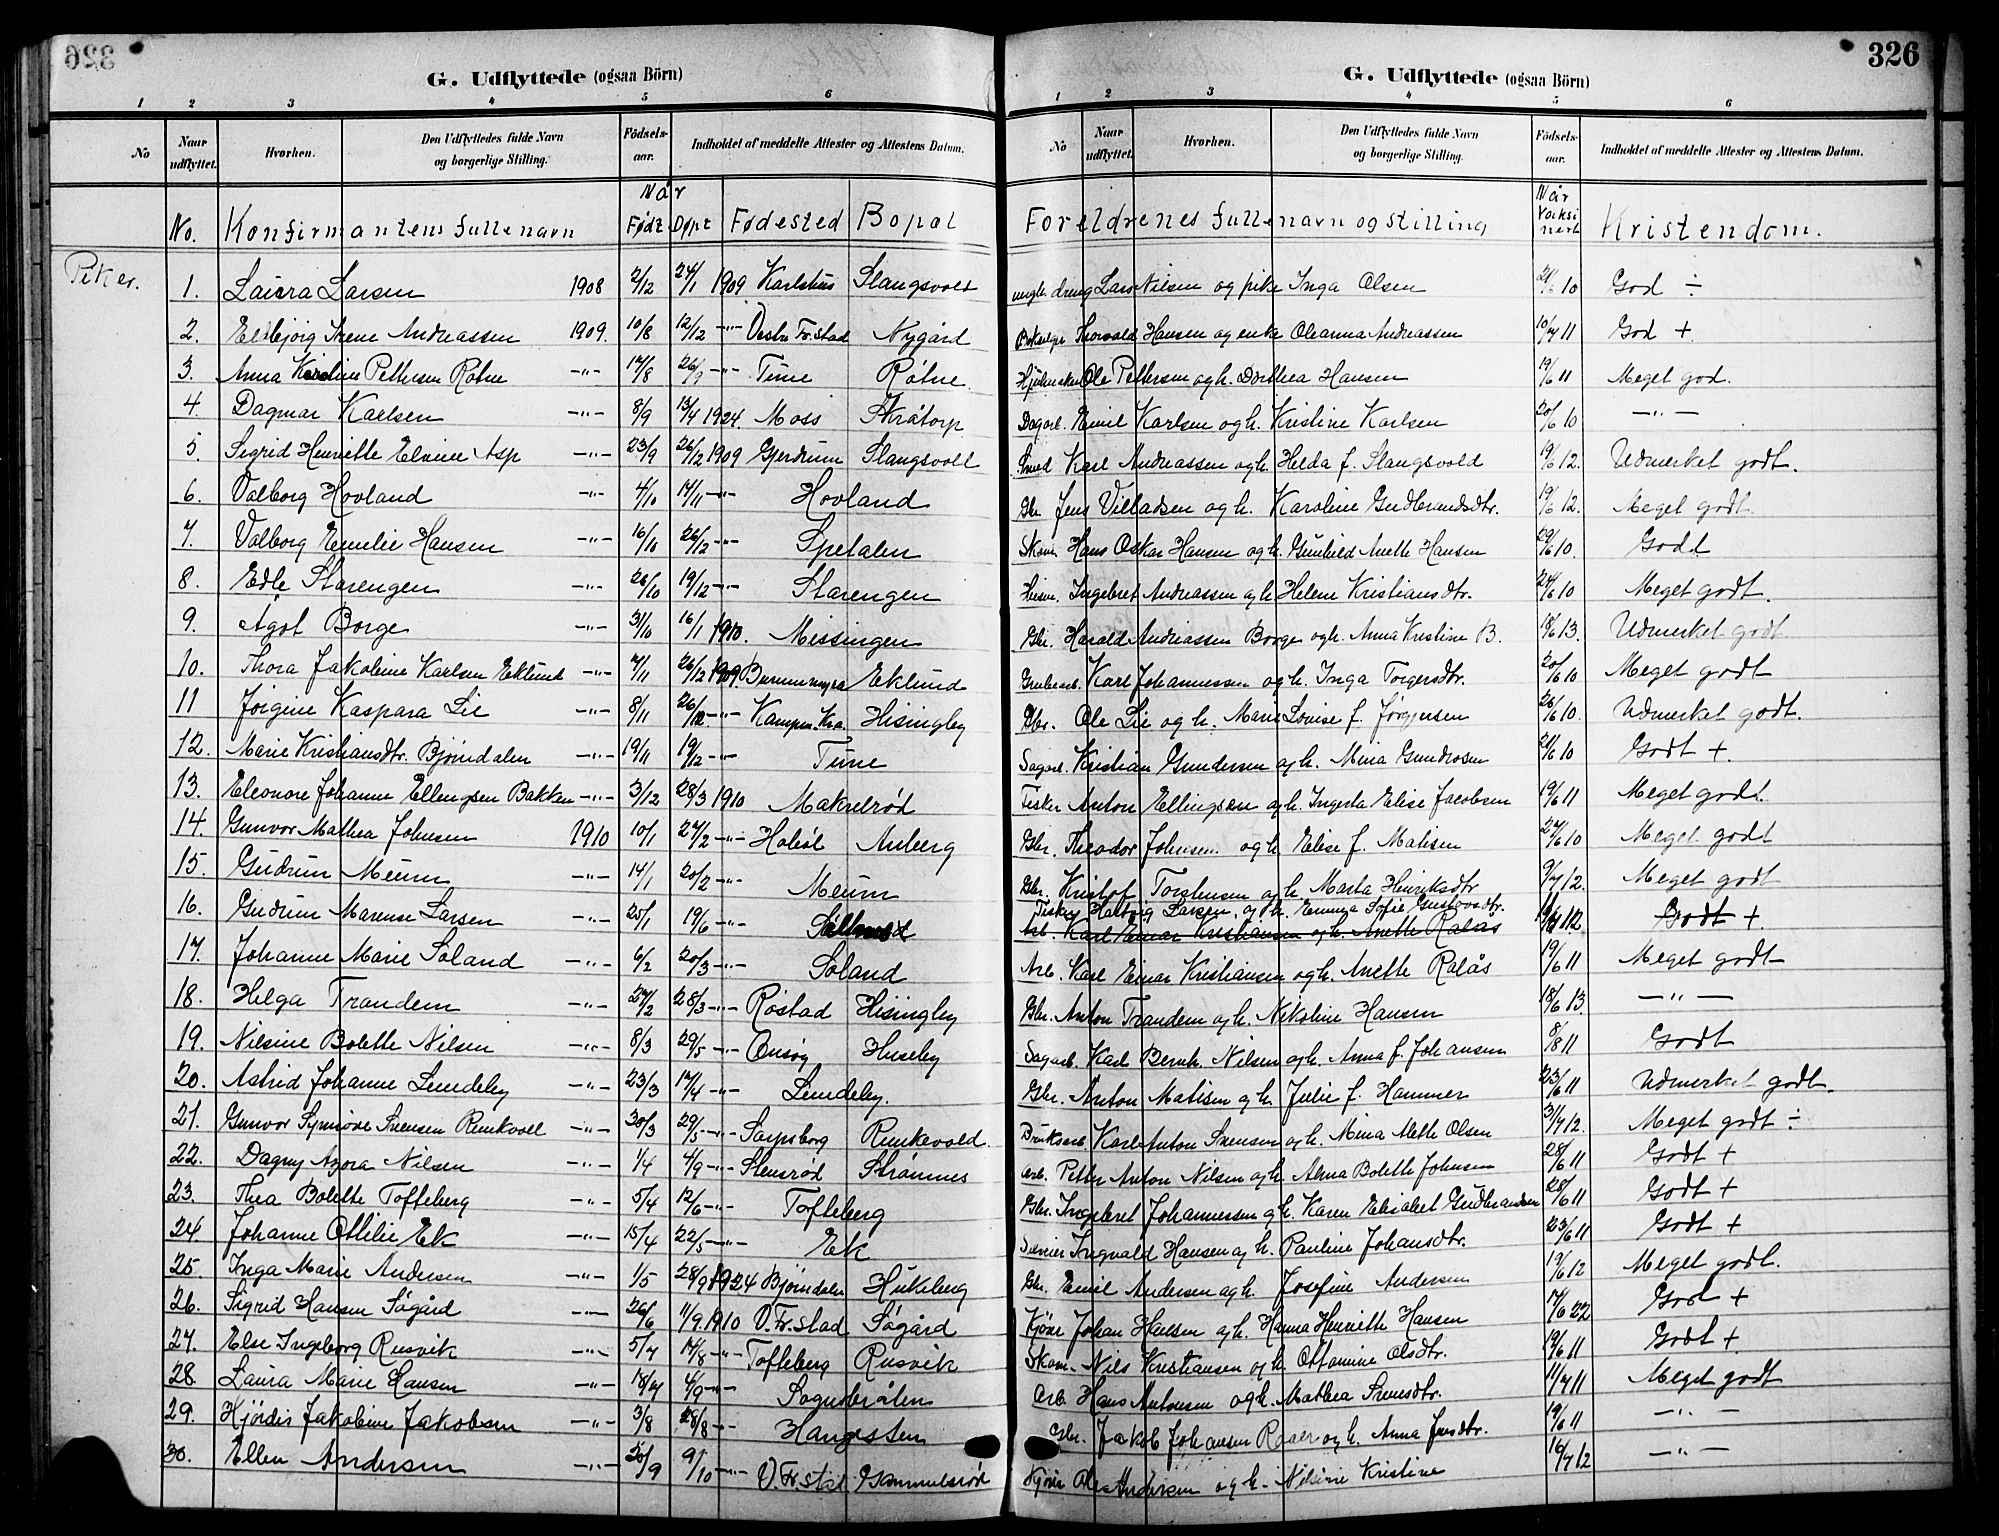 326
G. Udflyttede (ogsaa Börn)
1 2 3 4 5 6
No Naar udflyttet. Hvorhen. Den Udflyttedes fulde Navn og borgerlige Stilling. Födsels-aar. Indholdet af meddelte Attester og Attestens Datum.
Når
No. Konfirmantens fulle navn Født Døpt Fødested Bopæl
Piker.
1. Laura Larsen 1908 2/12 24/1 1909 Karlshus Slangsvold
2. Eldbjørg Irene Andreassen 1909. 10/8 12/12 -"- Vestre Fr.stad Nygård
3. Anna Karoline Pettersen Røtne -"- 17/8 26/9 -"- Tune Røtne
4. Dagmar Karlsen -"- 8/9 13/4 1924. Moss Skråtorp
5. Sigrid Henriette Elvine Asp -"- 23/9 26/12 1909 Gjerdrum Slangsvold
6. Valborg Hovland -"- 4/10 14/11 -"- Hovland
7. Valborg Emelie Hansen -"- 16/10 26/12 -"- Spetalen
8. Edle Starengen -"- 26/10 19/12 -"- Starengen
9. Ågot Borge -"- 31/10 16/1 1910. Missingen
10. Thora Jakobine Karlsen Eklund -"- 7/11 26/12 1909. Eklund
11 Jørgine Kaspara Lie -"- 8/11 26/12 -"- Kampen Kra. Hisingby
12. Marie Kristiansdtr. Bjørndalen -"- 19/11 19/12 -"- Tune
13. Eleonore Johanne Ellingsen Bakken -"- 3/12 28/3 1910 Makrelrød
14. Gunvor Mathea Johnsen 1910 10/1 27/2 -"- Hobøl Anberg
15. Gudrun Meum -"- 14/1 20/2 -"- Meum
16. Gudrun Marense Larsen -"- 25/1 19/6 -"-
17. Johanne Marie Soland -"- 6/2 20/3 -"- Soland
18. Helga Trandem -"- 27/2 28/3 -"- Røstad Hisingby
19. Nilsine Bolette Nilsen -"- 8/3 29/5 -"- Onsøy Huseby
20. Astrid Johanne Lundeby -"- 23/3 17/4 -"- Lundeby.
21. Gunvor Synnøve Svensen Runkvoll -"- 30/3 29/5 -"- Sarpsborg Runkevold
22. Dagny Azora Nilsen -"- 1/4 4/9 -"- Stensrød Strømnes
23. Thea Bolette Tofteberg -"- 5/4 12/6 -"- Tofteberg
24. Johanne Ottilie Ek -"- 15/4 22/5 -"- Ek
25. Inga Marie Andersen -"- 1/5 28/9 1924 Bjørndalen Hukeberg
26. Sigrid Hansen Søgård 26/6 11/9 1910 V. Fr.stad Søgård
27. Else Ingeborg Rusvik -"- 5/7 14/8 -"- Tofteberg Rusvik
28. Laura Marie Hansen -"- 18/7 4/9 -"- Sognsbråten
29. Hjördis Jakobine Jakobsen -"- 3/8 28/8 -"- Haugsten
30. Ellen Andersen -"- 20/9 9/10 -"- V. Fr.stad Gammelsrød
326
G. Udflyttede (ogsaa Börn)
1 2 3 4 5 6
No Naar udflyttet. Hvorhen. Den Udflyttedes fulde Navn og borgerlige Stilling. Födsels-aar. Indholdet af meddelte Attester og Attestens Datum.
Foreldrenes fulle navn og stilling Når Vaksinert Kristendom.
ungk. dreng Lars Nilsen og pike Inga Olsen 21/6 10 God ÷
Thorvald Hansen og enke Oleanna Andreassen 10/7 11 God +
Ole Pettersen og h. Dorthea Hansen 19/6 11 Meget god.
Dagarb. Emil Karlsen og h. Kristine Karlsen 20/6 10 -"-
Smed Karl Andreassen og h. Helda f. Slangsvold 19/6 12. Udmerket godt.
Gbr. Jens Villadsen og h. Karoline Gudbrandsdtr. 19/6 12. Meget godt
Skom. Hans Oskar Hansen og h. Gunhild Anette Hansen 29/6 10. Godt
Husm. Ingebret Andreassen og h. Helene Kristiansdtr. 24/6 10 Meget godt.
Gbr. Harald Andreassen Borge og h. Anna Kristine B. 18/6 13. Udmerket godt
Grubearb. Karl Johannessen og h. Inga Torgersdtr. 20/6 10 Meget godt
Gbr. Ole Lie og h. Marie Lovise f. Jørgensen 26/6 10. Udmerket godt.
Sagarb. Kristian Gundersen og h. Mina Gundrosen 21/6 10 Godt +
Fisker Anton Ellingsen og h. Ingerta Elise Jacobsen 19/6 11 Meget godt.
Gbr. Theodor Johnsen og h. Elise f. Matisen 27/6 10 Meget godt
Gbr. Kristof Torstensen og h. Marta Henriksdtr 9/7 12. Meget godt
Fisker Halvdig Larsen og h. Emma Sofie Gustavsdtr. 12 Godt +
Arb. Karl Einar Kristiansen og h. Anette Ralås
Arb. Karl Einar Kristiansen og h. Anette Ralås 19/6 11 Meget godt
Gbr. Anton Trandem og h. Nikoline Hansen 18/6 13. -"-
Sagarb. Karl Bernh. Nilsen og h. Anna f. Johansen 8/8 11 Godt
Gbr. Anton Matisen og h. Julie f. Hammer 23/6 11 Udmerket godt.
Bruksarb. Karl Anton Svensen og h. Mina Alette Olsen 3/7 12. Meget godt ÷
Arb. Petter Anton Nilsen og h. Alma Bolette Johnsen 28/6 11 Godt +
Gbr. Ingebret Johannessen og h. Karen Elisabet Gudbrandsen 28/6 11 Godt +
Ingvald Hansen og h. Pauline Johansdtr. 23/6 11 Godt +
Gbr. Emil Andersen og h. Josefine Andersen 19/6 12 Meget godt.
Kjører Johan Hansen og h. Hanna Henriette Hansen 17/6 22 God +
Skom. Nils Kristiansen og h. Ottomine Olsdtr. 19/6 11 Godt +
Arb. Hans Antonsen og h. Mathea Svensdtr. 11/7 11 Meget godt
Gbr. Jakob Johansen Raaer og h. Anna Jensdtr. 19/6 11 -"-
Kjører Ole Andersen og h. Nilsine Kristine 16/7 12 -"-